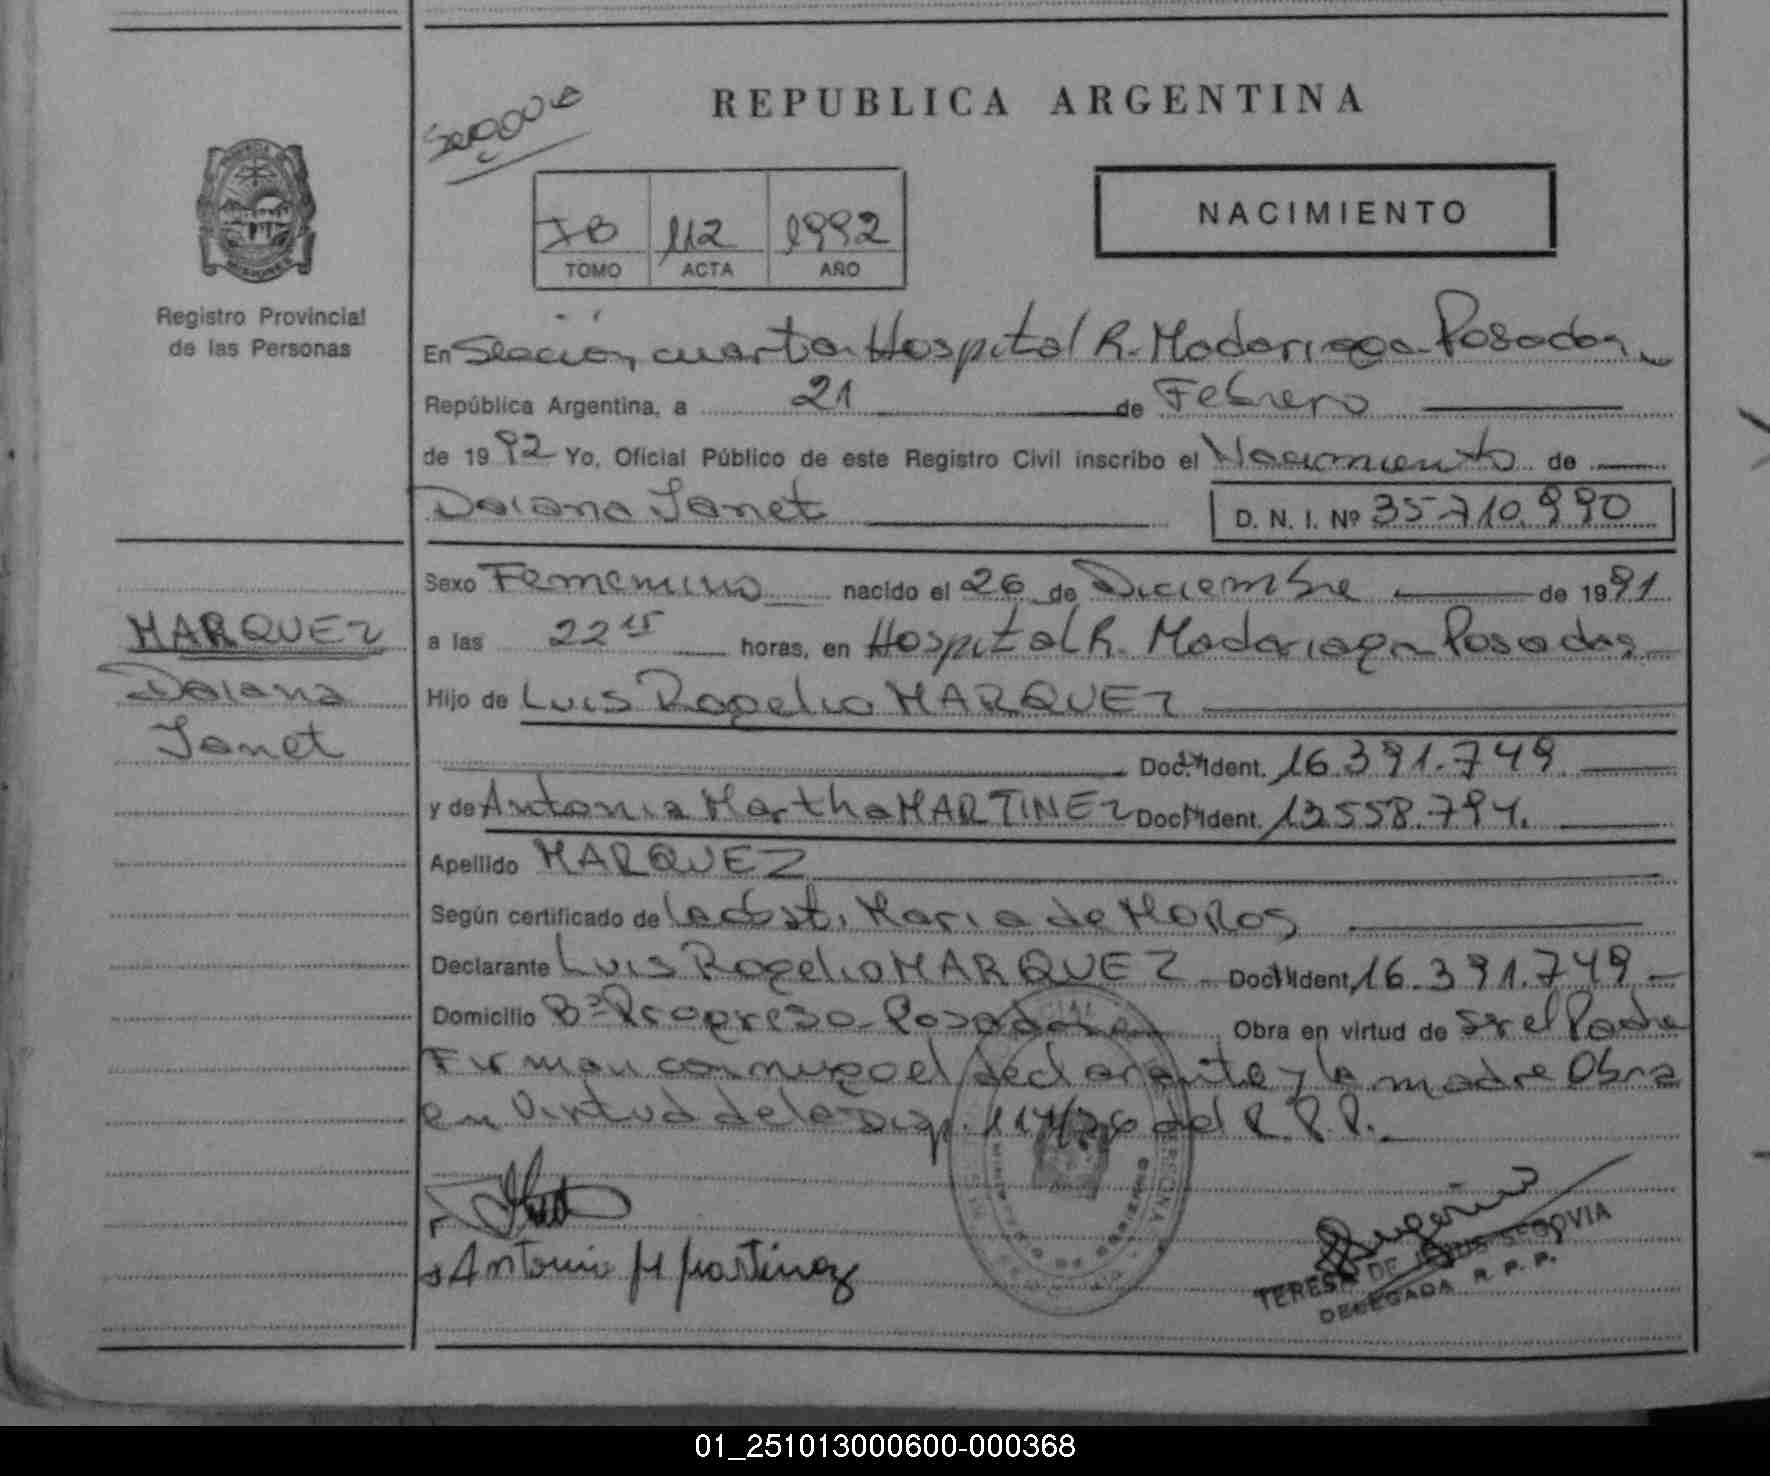 REPUBLICA ARGENTINA
TOMO ACTA AÑO
112 1992
NACIMIENTO
Registro Provincial
de las Personas
En Sección cuarta Hospital R. Madariaga Posadas
República Argentina, a 21 de Febrero
de 1992 Yo, Oficial Público de este Registro Civil inscribo el Nacimiento de
Daiana Janet D. N. I. Nº 35.710.990
Sexo Femenino nacido el 26 de Diciembre de 1991
a las 22 15 horas, en Hospital R. Madariaga Posadas
MARQUEZ
Daiana
Janet
Hijo de Luis Rogelio MARQUEZ
Doc. Ident. 16.391.749
y de Antonia Martha MARTINEZ Doc. Ident. 13.558.794.
Apellido MARQUEZ
Según certificado de la obst. Maria de
Declarante Luis Rogelio MARQUEZ Doc. Ident. 16.391.749
Domicilio Bº Progreso Posadas Obra en virtud de ser el Padre
Firman conmigo el declarante y la madre Obra
en Virtud de la Disp. 114/76 del R.P.P.
Antonia M Martinez
TERESA DE JESUS SEGOVIA
DELEGADA R. P. P.
01_251013000600-000368